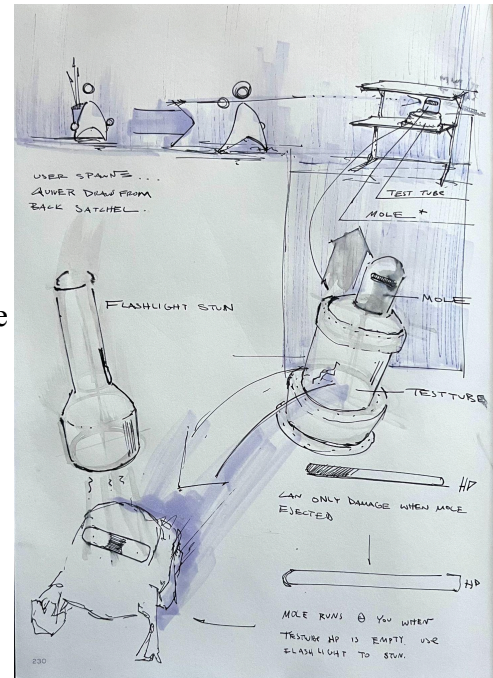 USER SPAWNS....
QUIVER DRAW FROM
BACK SATCHEL.
TEST TUBE
MOLE *
FLASHLIGHT STUN
MOLE
TESTTUBE
HP
CAN ONLY DAMAGE WHEN MOLE
EJECTED
HP
MOLE RUNS @ YOU WHEN
TESTUBE HP IS EMPTY USE
FLASHLIGHT TO STUN.
230
e